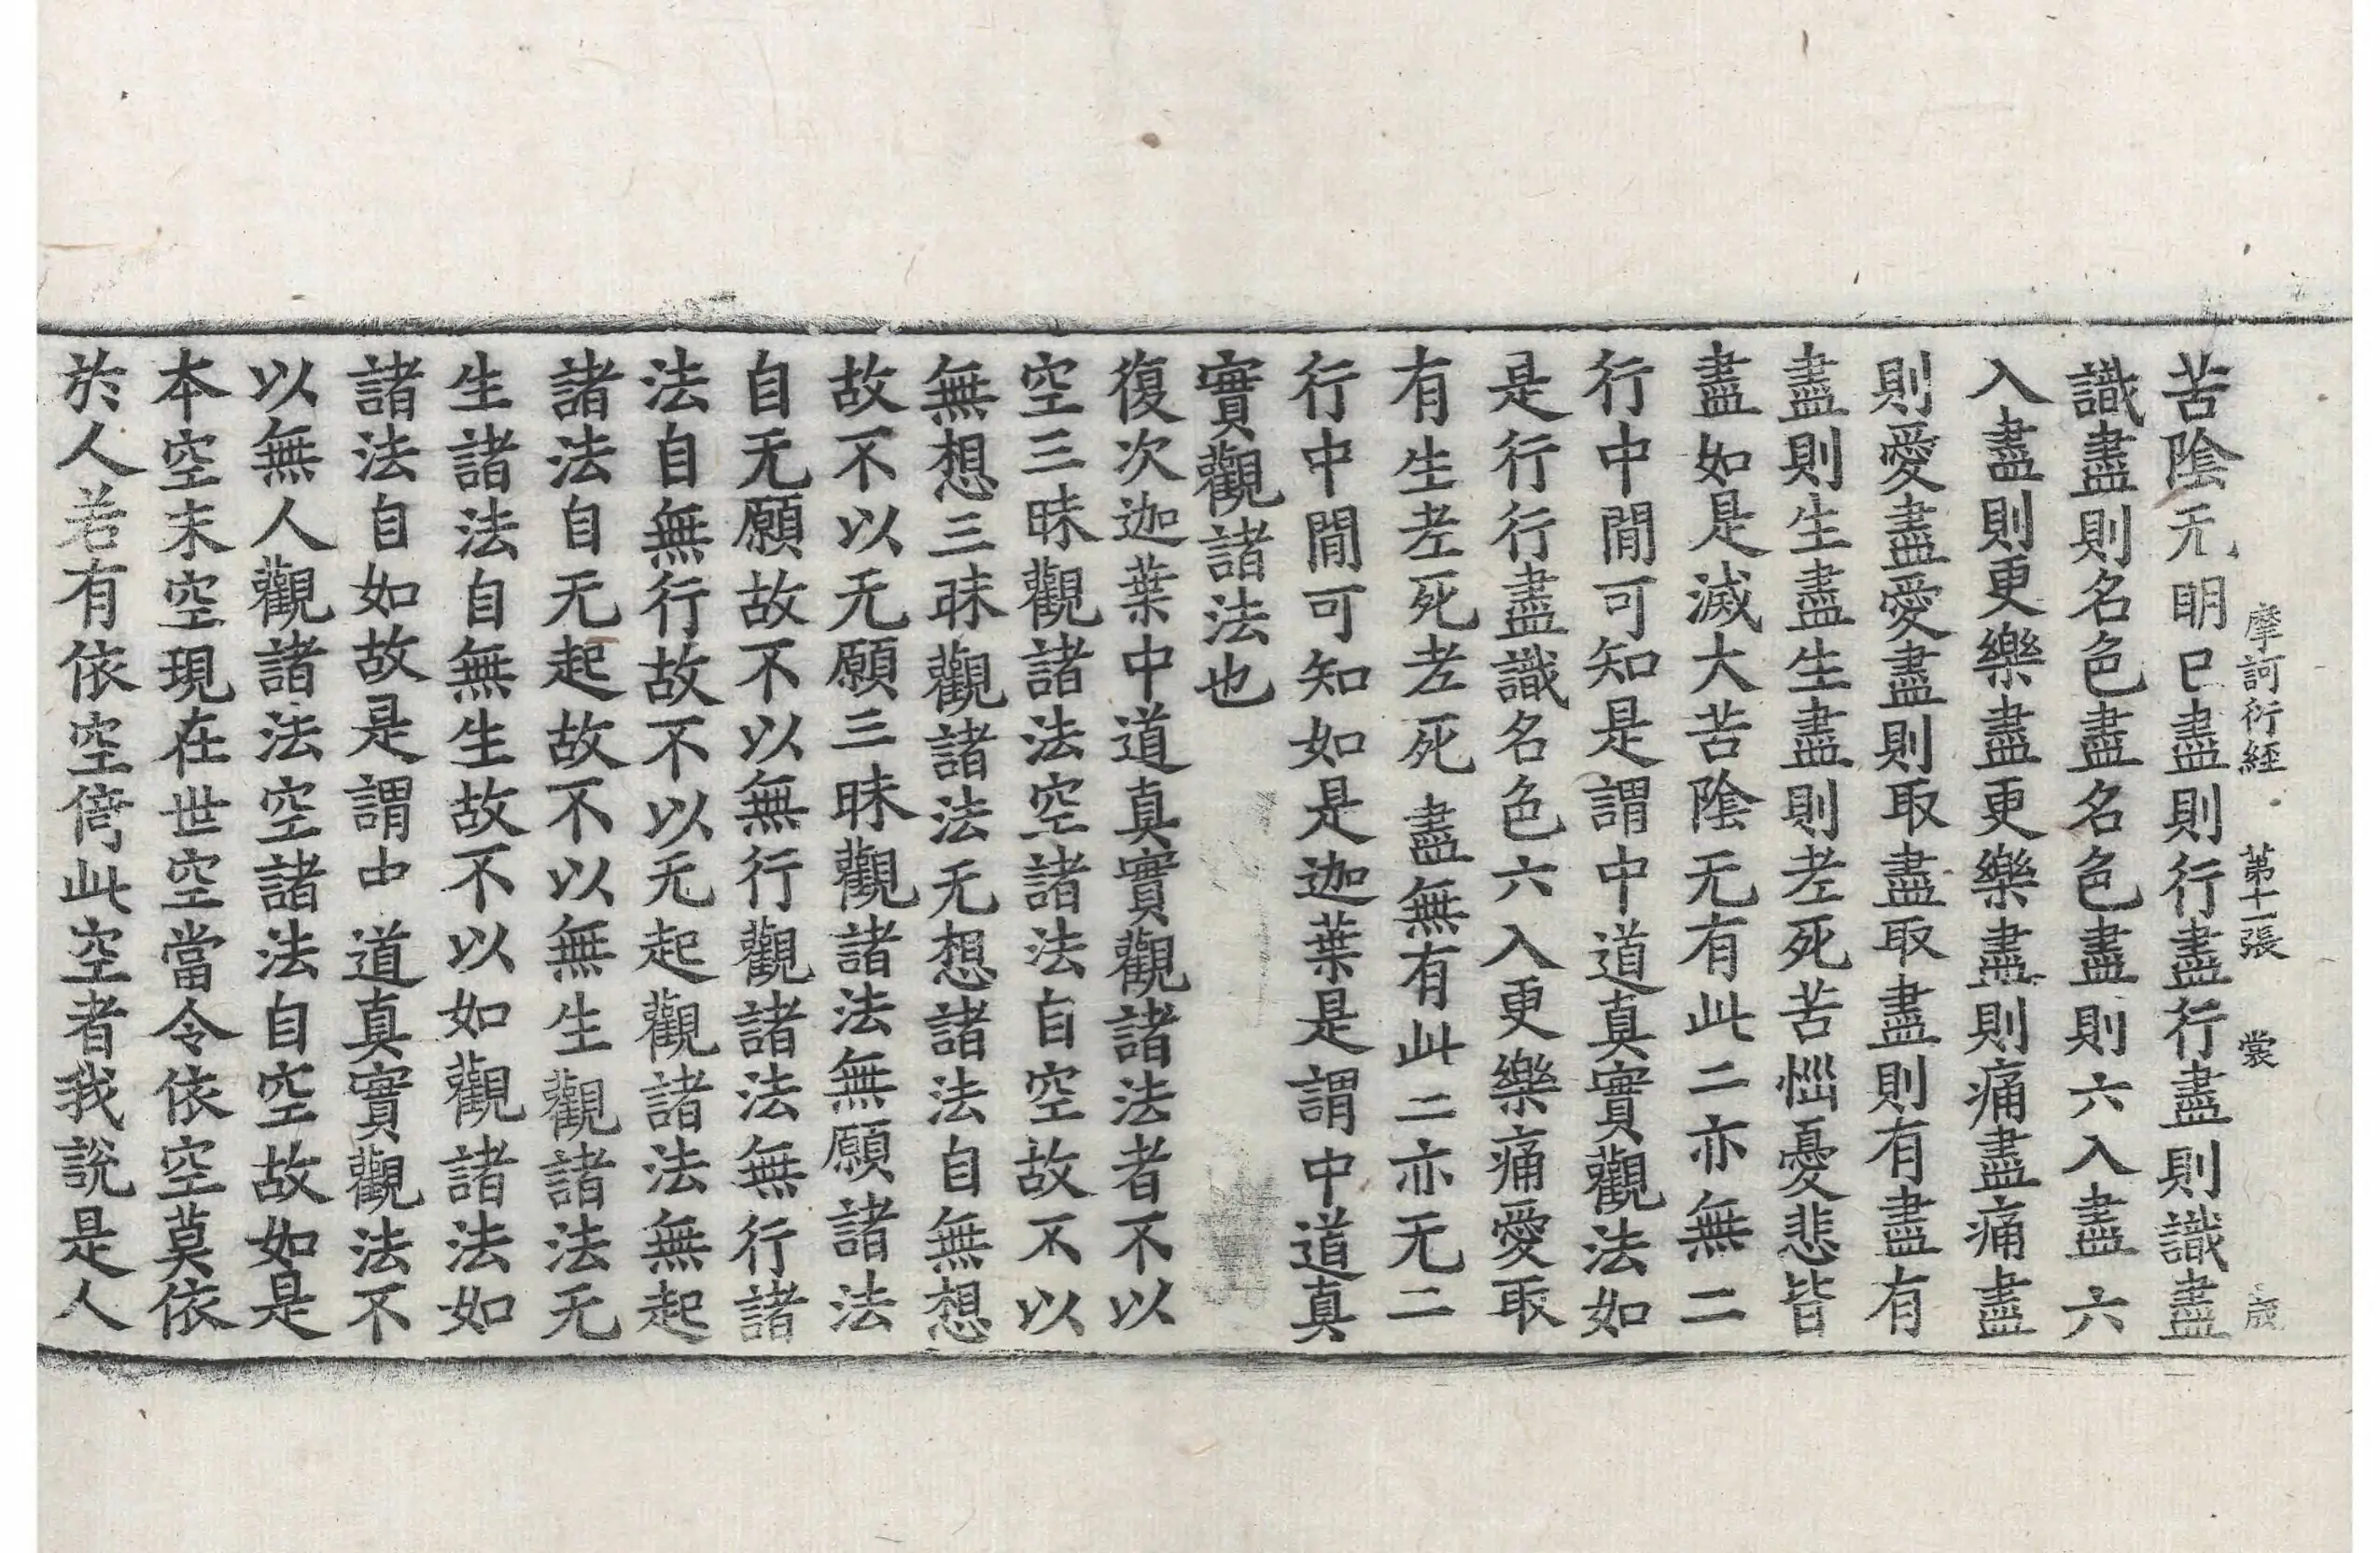 摩訶衍經 第十一張 裳
苦陰无明已盡則行盡行盡則識盡
識盡則名色盡名色盡則六入盡六
入盡則更樂盡更樂盡則痛盡痛盡
則愛盡愛盡則取盡取盡則有盡有
盡則生盡生盡則老死苦惱憂悲皆
盡如是滅大苦陰无有此二亦無二
行中閒可知是謂中道真實觀法如
是行行盡識名色六入更樂痛愛取
有生老死老死盡無有此二亦无二
行中閒可知如是迦葉是謂中道真
實觀諸法也
復次迦葉中道真實觀諸法者不以
空三昧觀諸法空諸法自空故不以
無想三昧觀諸法无想諸法自無想
故不以无願三昧觀諸法無願諸法
自无願故不以無行觀諸法無行諸
法自無行故不以无起觀諸法無起
諸法自无起故不以無生觀諸法无
生諸法自無生故不以如觀諸法如
諸法自如故是謂中道真實觀法不
以無人觀諸法空諸法自空故如是
本空末空現在世空當令依空莫依
於人若有依空倚此空者我說是人